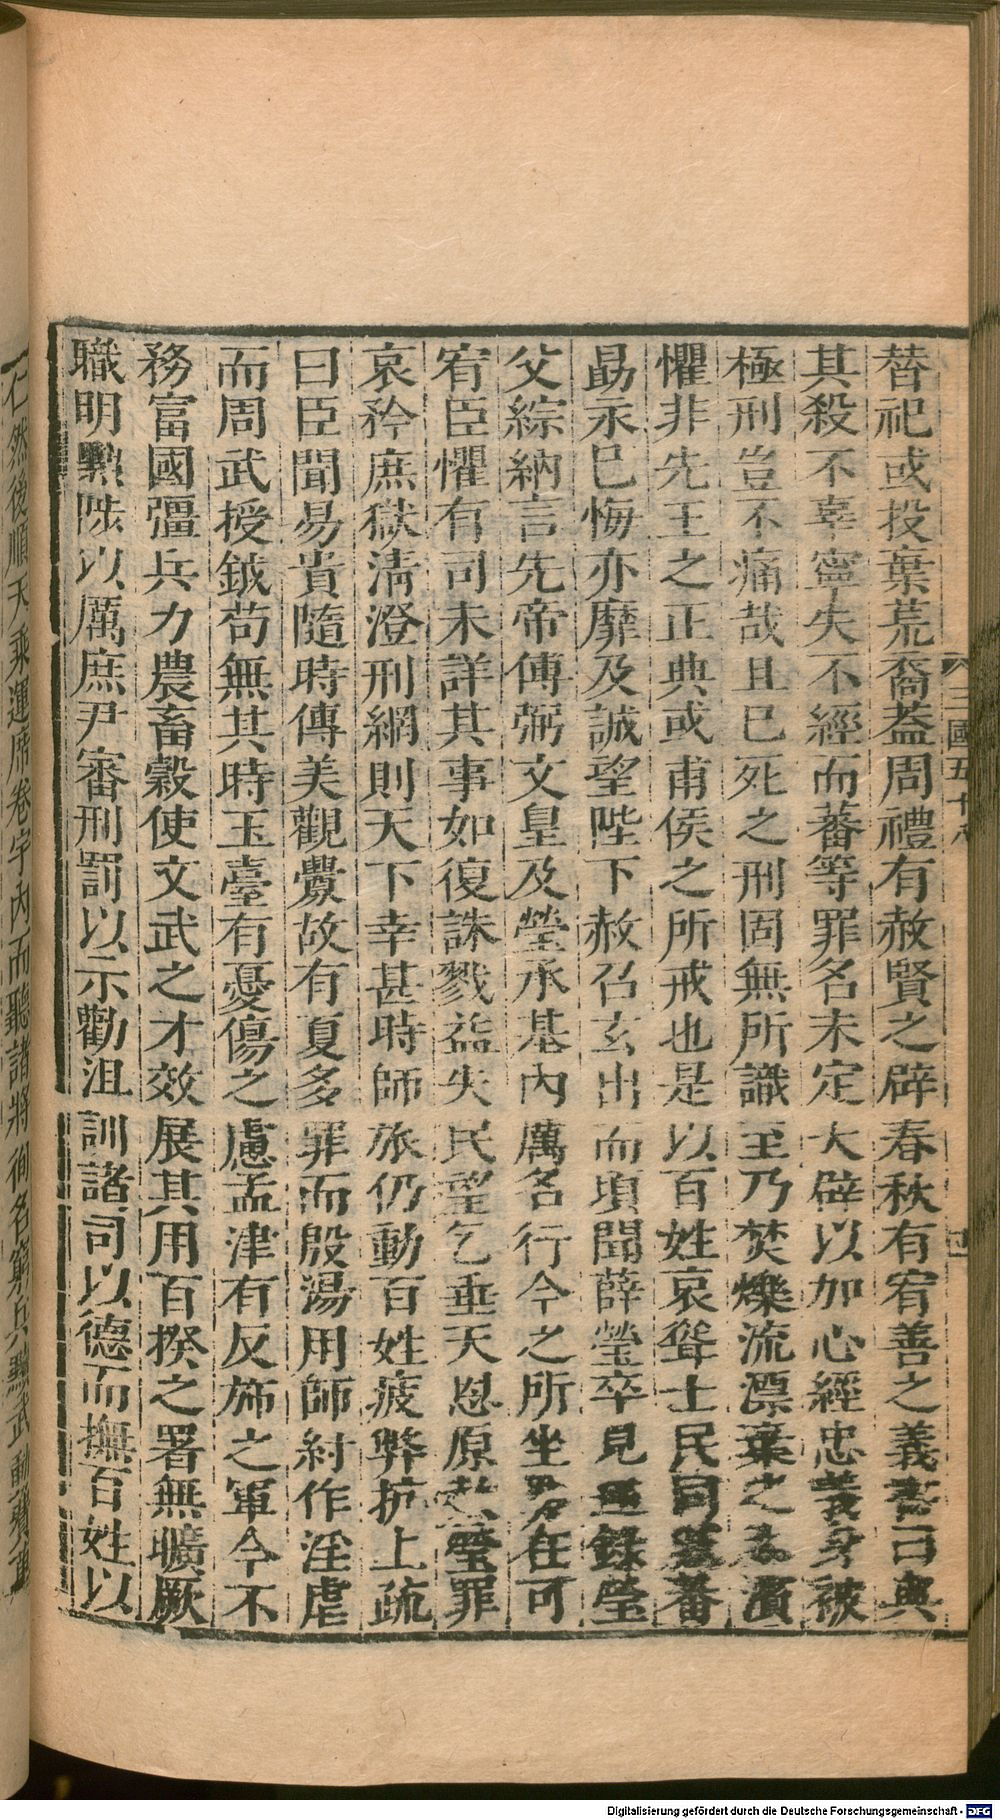 替祀或投棄荒裔蓋周禮有赦賢之辟春秋有宥善之義書曰與
其殺不辜寧失不經而蕃等罪名未定大辟以加心經忠義身被
極刑豈不痛哉且已死之刑固無所識至乃焚爍流漂棄之水濱
懼非先王之正典或甫侯之所戒也是以百姓哀聳士民同慼蕃
勗永已悔亦靡及誠望陛下赦召玄出而頃聞薛瑩卒見逮錄瑩
父綜納言先帝傅弼文皇及瑩承基內厲名行今之所坐罪在可
宥臣懼有司未詳其事如復誅戮益失民望乞垂天恩原赦瑩罪
哀矜庶獄清澄刑網則天下幸甚時師旅仍動百姓疲弊抗上疏
曰臣聞易貴隨時傳美觀釁故有夏多罪而殷湯用師紂作淫虐
而周武授鉞苟無其時玉臺有憂傷之慮孟津有反斾之軍今不
務富國彊兵力農畜穀使文武之才效展其用百揆之署無曠厥
職明黜陟以厲庶尹審刑罰以示勸沮訓諸司以德而撫百姓以
三國五十八
仁然後順天乘運席卷宇內而聽諸將徇名窮兵黷武動費萬
Digitalisierung gefördert durch die Deutsche Forschungsgemeinschaft - DFG